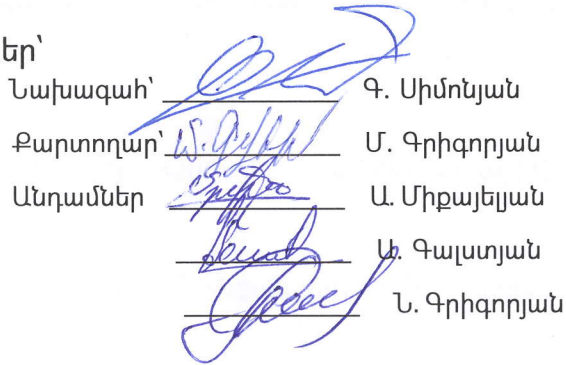 եր՝
Նախագահ՝ Գ. Սիմոնյան
Քարտողար՝ Մ. Գրիգորյան
Անդամներ Ա. Միքայելյան
Ա. Գալստյան
Ն. Գրիգորյան